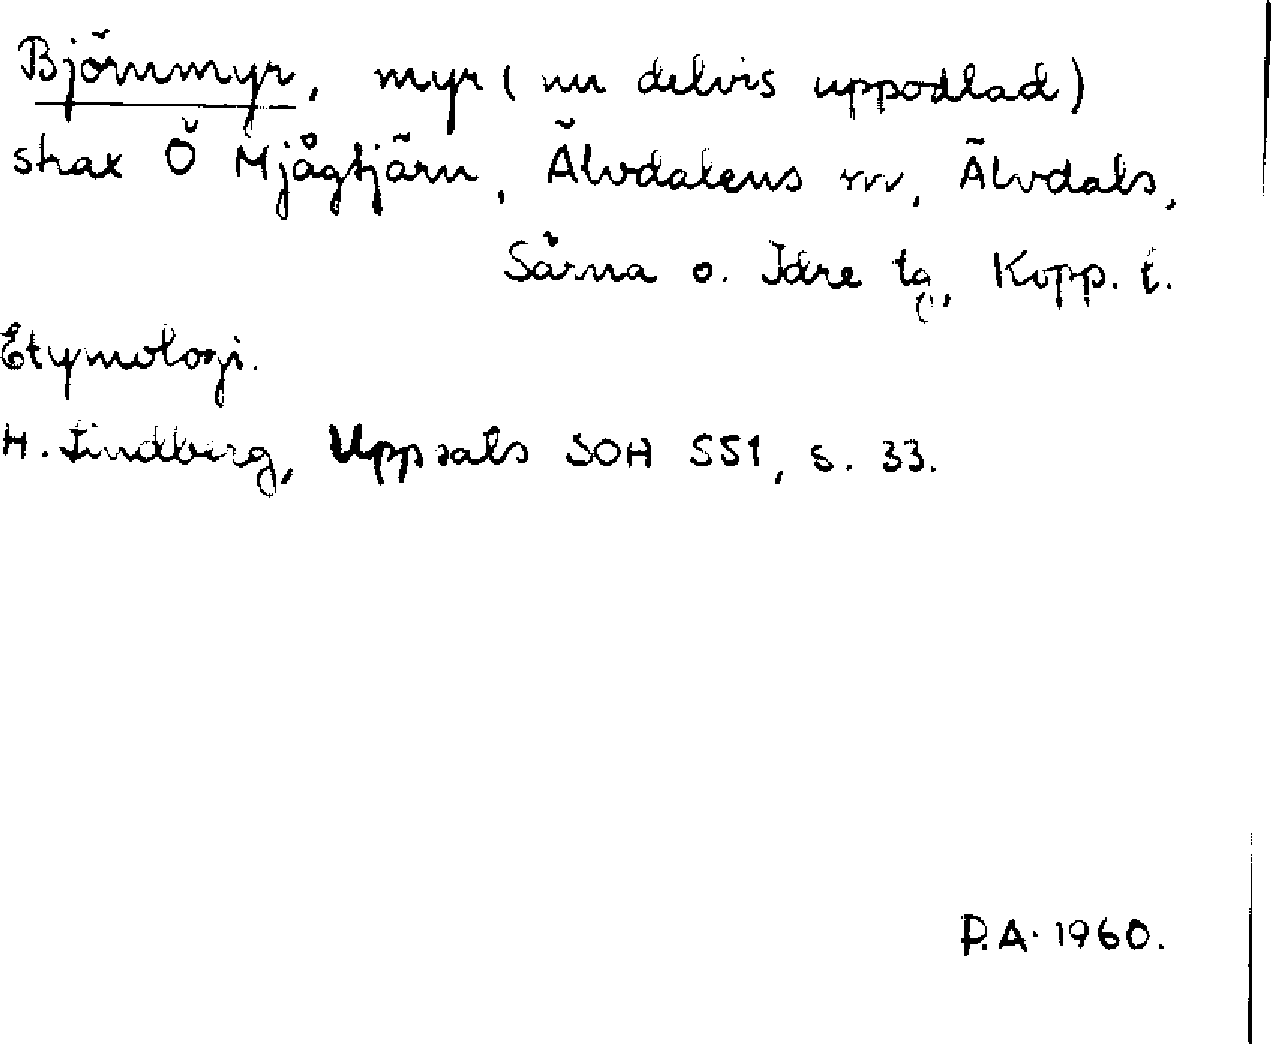 Björnmyr, myr (nu delvis uppodlad)
strax Ö Mjågtjärn, Älvdalens sn, Älvdals,
Särna o. Idre tg, Kopp. l.
Etymologi.
H. Lindberg, Uppsala SOH 551, s. 33.
P.A. 1960.